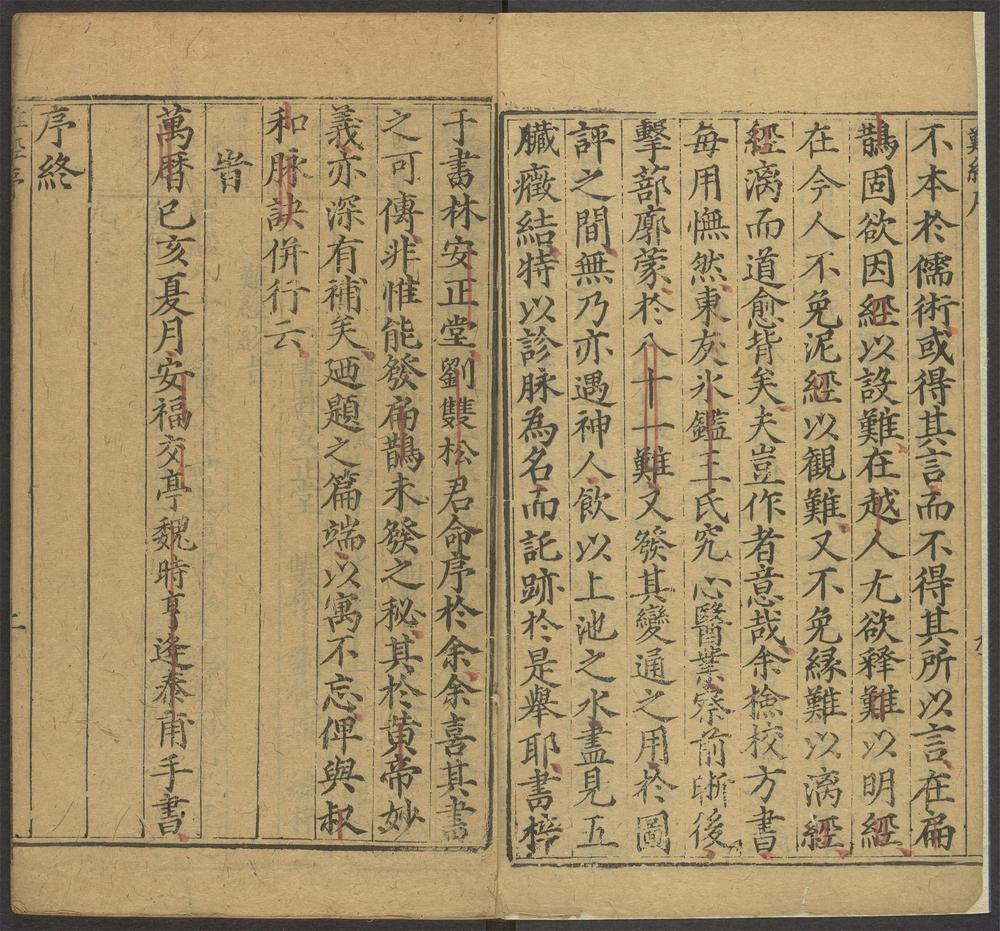 不本於儒術或得其言而不得其所以言在扁
鵲固欲因經以設難在越人尤欲释難以明經
在今人不免泥經以觀難又不免縁難以漓經
經漓而道愈背矣夫豈作者意哉余檢校方書
每用憮然東友氷鑑王氏究心醫業察前晣後
擊蔀廓蒙於八十一難又發其變通之用於圖
評之間無乃亦遇神人飲以上池之水盡見五
臟癥結特以診脉為名而託跡於是舉耶書梓
于書林安正堂劉雙松君命序於余余喜其書
之可傳非惟能發扁鵲未發之秘其於黄帝妙
義亦深有補矣廼題之篇端以寓不忘俾與叔
和脉訣併行云
旹
萬曆已亥夏月安福交亭魏時亨逄泰甫手書
序終
二